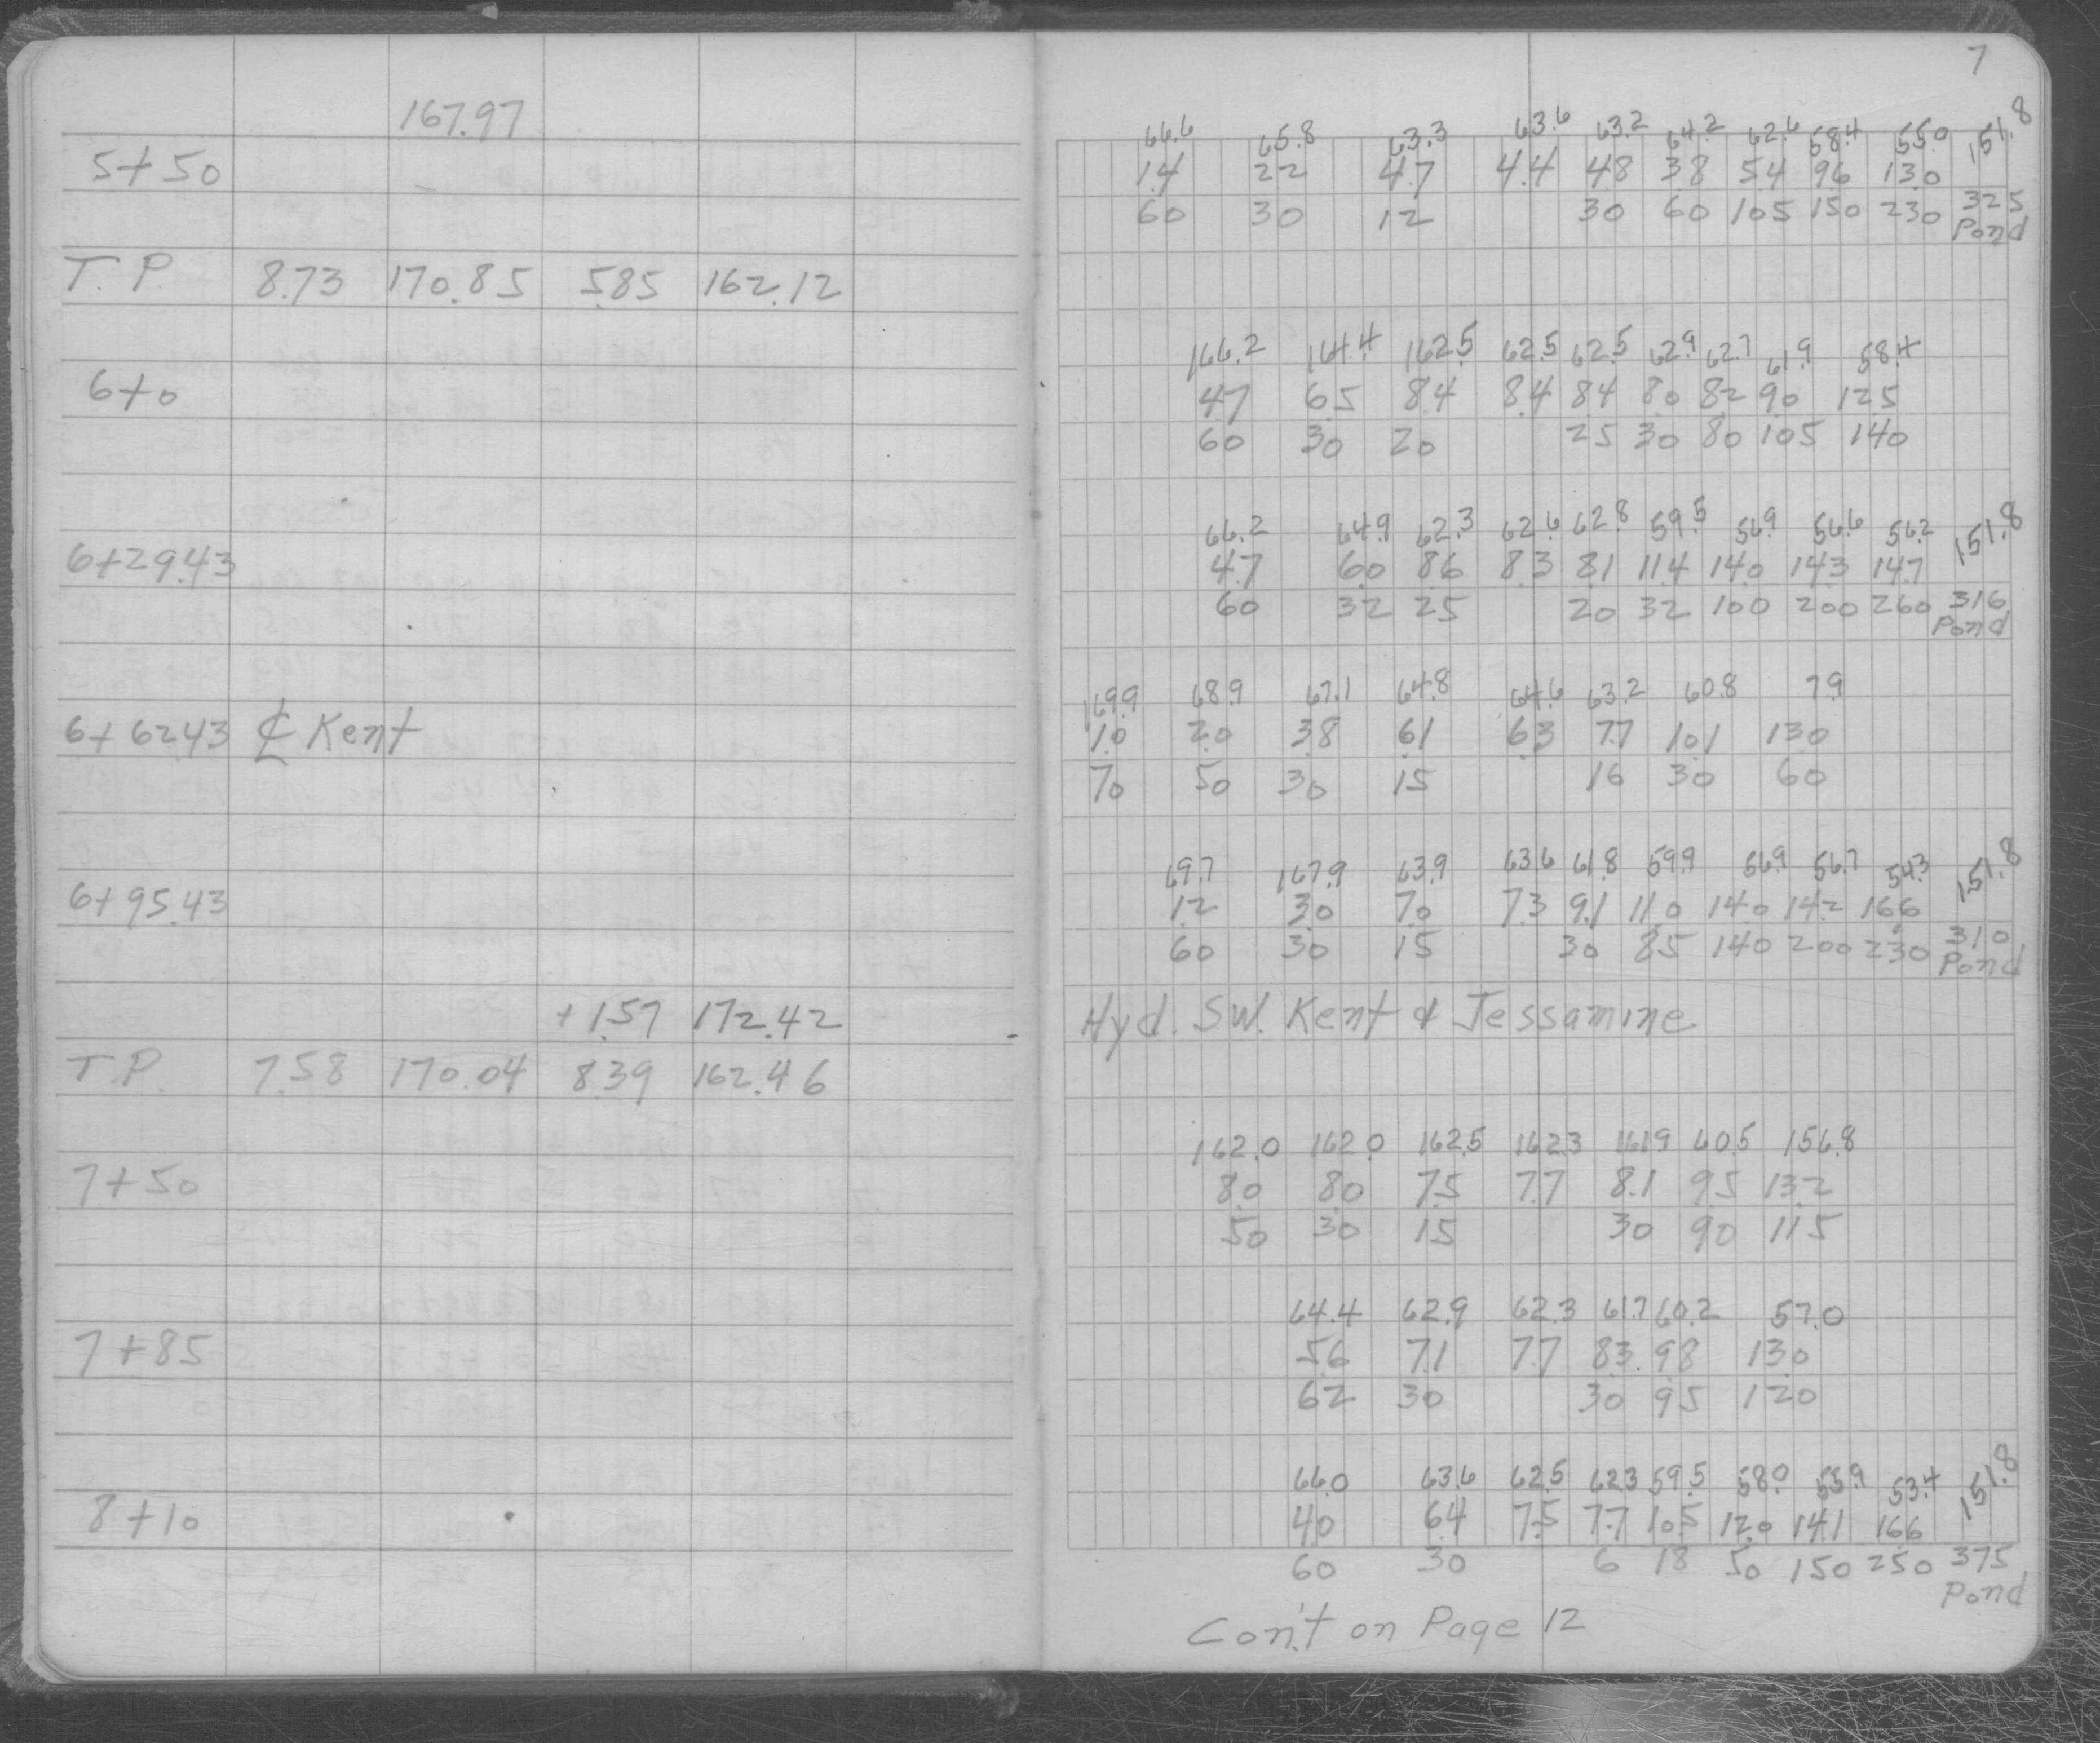 7
167.97
66.6 65.8 63.3 63.6 63.2 64.2 62.6 58.4 55.0 151.8
5+50 1.4 2.2 4.7 4.4 4.8 3.8 5.4 9.6 13.0
60 30 12 30 60 105 150 230 325
Pond
T.P. 8.73 170.85 5.85 162.12
166.2 164.4 162.5 62.5 62.5 62.9 62.7 61.9 58.4
6+0 4.7 6.5 8.4 8.4 8.4 8.0 8.2 9.0 12.5
60 30 20 25 30 80 105 140
66.2 64.9 62.3 62.6 62.8 59.5 56.9 56.6 56.2 151.8
6+29.43 4.7 6.0 8.6 8.3 8.1 11.4 14.0 14.3 14.7
60 32 25 20 32 100 200 260 316
Pond
169.9 68.9 67.1 64.8 64.6 63.2 60.8 7.9
6+62.43 ℄ Kent 1.0 2.0 3.8 6.1 6.3 7.7 10.1 13.0
70 50 30 15 16 30 60
69.7 167.9 63.9 63.6 61.8 59.9 56.9 56.7 54.3 151.8
6+95.43 1.2 3.0 7.0 7.3 9.1 11.0 14.0 14.2 16.6
60 30 15 30 85 140 200 230 310
Pond
+1.57 172.42 Hyd. S.W. Kent & Jessamine
T.P. 7.58 170.04 8.39 162.46
162.0 162.0 162.5 162.3 161.9 60.5 156.8
7+50 8.0 8.0 7.5 7.7 8.1 9.5 13.2
50 30 15 30 90 115
64.4 62.9 62.3 61.7 60.2 57.0
7+85 5.6 7.1 7.7 8.3 9.8 13.0
62 30 30 95 120
66.0 63.6 62.5 62.3 59.5 58.0 55.9 53.4 151.8
8+10 4.0 6.4 7.5 7.7 10.5 12.0 14.1 16.6
60 30 6 18 50 150 250 375
Pond
Con't on Page 12